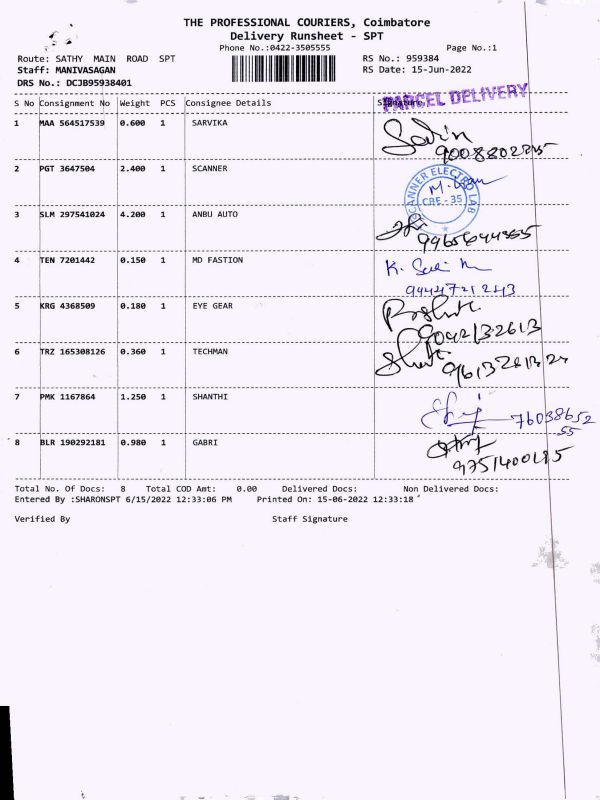 THE PROFESSIONAL COURIERS, Coimbatore
Delivery Runsheet - SPT
Phone No.:0422-3505555 Page No.:1
Route: SATHY MAIN ROAD SPT RS No.: 959384
Staff: MANIVASAGAN RS Date: 15-Jun-2022
DRS No.: DCJB95938401
PARCEL DELIVERY
S No Consignment No Weight PCS Consignee Details Signature
1 MAA 564517539 0.600 1 SARVIKA
2 PGT 3647504 2.400 1 SCANNER
SCANNER ELECTRO LAB
CBE - 35
3 SLM 297541024 4.200 1 ANBU AUTO
4 TEN 7201442 0.150 1 MD FASTION
5 KRG 4368509 0.180 1 EYE GEAR
9042132613
6 TRZ 165308126 0.360 1 TECHMAN
7 PMK 1167864 1.250 1 SHANTHI
76038652
55
8 BLR 190292181 0.980 1 GABRI
Total No. Of Docs: 8 Total COD Amt: 0.00 Delivered Docs: Non Delivered Docs:
Entered By :SHARONSPT 6/15/2022 12:33:06 PM Printed On: 15-06-2022 12:33:18
Verified By Staff Signature